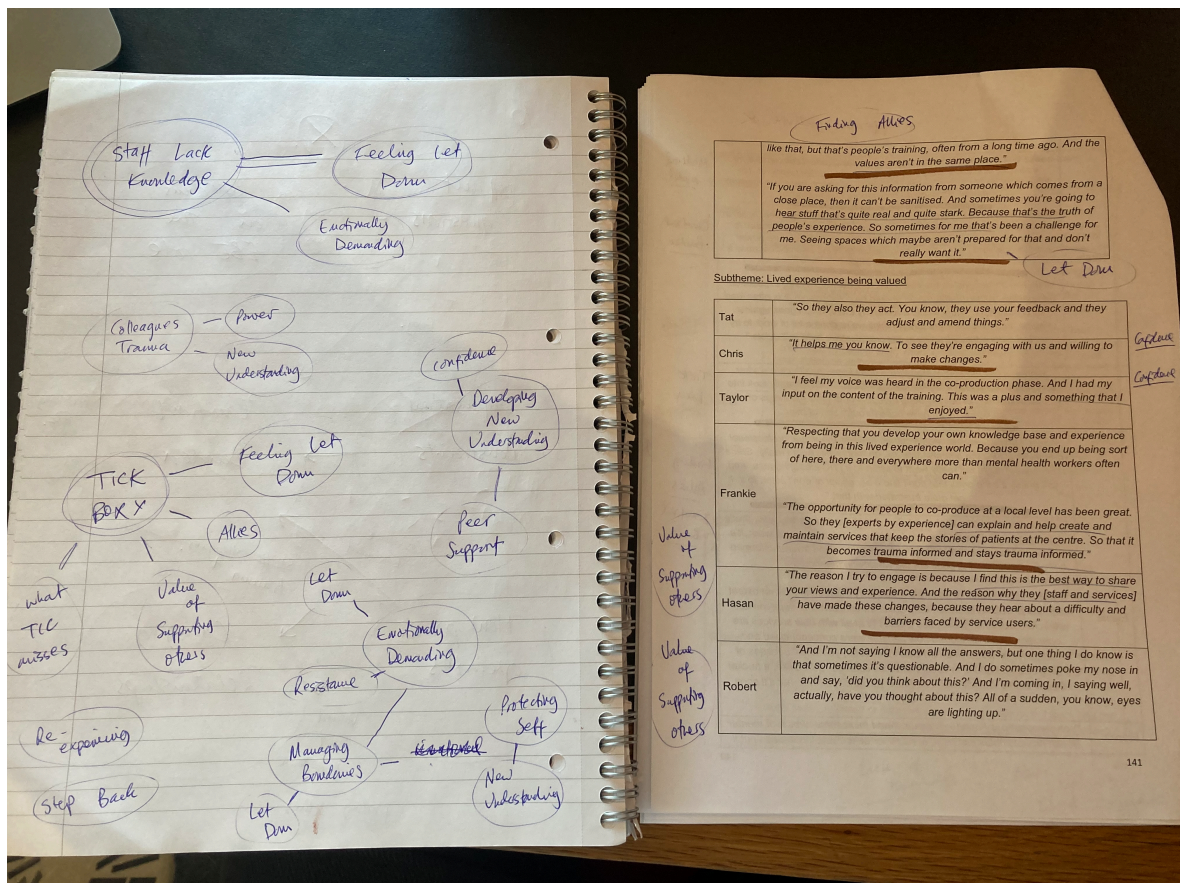 Staff Lack
Knowledge
Feeling Let
Down
Emotionally
Demanding
Colleagues
Trauma
Power
New
Understanding
Confidence
Developing
New
Understanding
Peer
Support
TICK
BOX
Feeling Let
Down
Allies
What
TIC
misses
Value
of
Supporting
others
Let
Down
Emotionally
Demanding
Resistance
Managing
Boundaries
Let
Down
Protecting
Self
New
Understanding
Re-
experiencing
Step Back
Finding Allies
like that, but that's people's training, often from a long time ago. And the
values aren't in the same place."
"If you are asking for this information from someone which comes from a
close place, then it can't be sanitised. And sometimes you're going to
hear stuff that's quite real and quite stark. Because that's the truth of
people's experience. So sometimes for me that's been a challenge for
me. Seeing spaces which maybe aren't prepared for that and don't
really want it."
Let Down
Subtheme: Lived experience being valued
Tat
"So they also they act. You know, they use your feedback and they
adjust and amend things."
Confidence
Chris
"It helps me you know. To see they're engaging with us and willing to
make changes."
Confidence
Taylor
"I feel my voice was heard in the co-production phase. And I had my
input on the content of the training. This was a plus and something that I
enjoyed."
Frankie
"Respecting that you develop your own knowledge base and experience
from being in this lived experience world. Because you end up being sort
of here, there and everywhere more than mental health workers often
can."
"The opportunity for people to co-produce at a local level has been great.
So they [experts by experience] can explain and help create and
maintain services that keep the stories of patients at the centre. So that it
becomes trauma informed and stays trauma informed."
Value
of
Supporting
others
Hasan
"The reason I try to engage is because I find this is the best way to share
your views and experience. And the reason why they [staff and services]
have made these changes, because they hear about a difficulty and
barriers faced by service users."
Value
of
Supporting
others
Robert
"And I'm not saying I know all the answers, but one thing I do know is
that sometimes it's questionable. And I do sometimes poke my nose in
and say, 'did you think about this?' And I'm coming in, I saying well,
actually, have you thought about this? All of a sudden, you know, eyes
are lighting up."
141